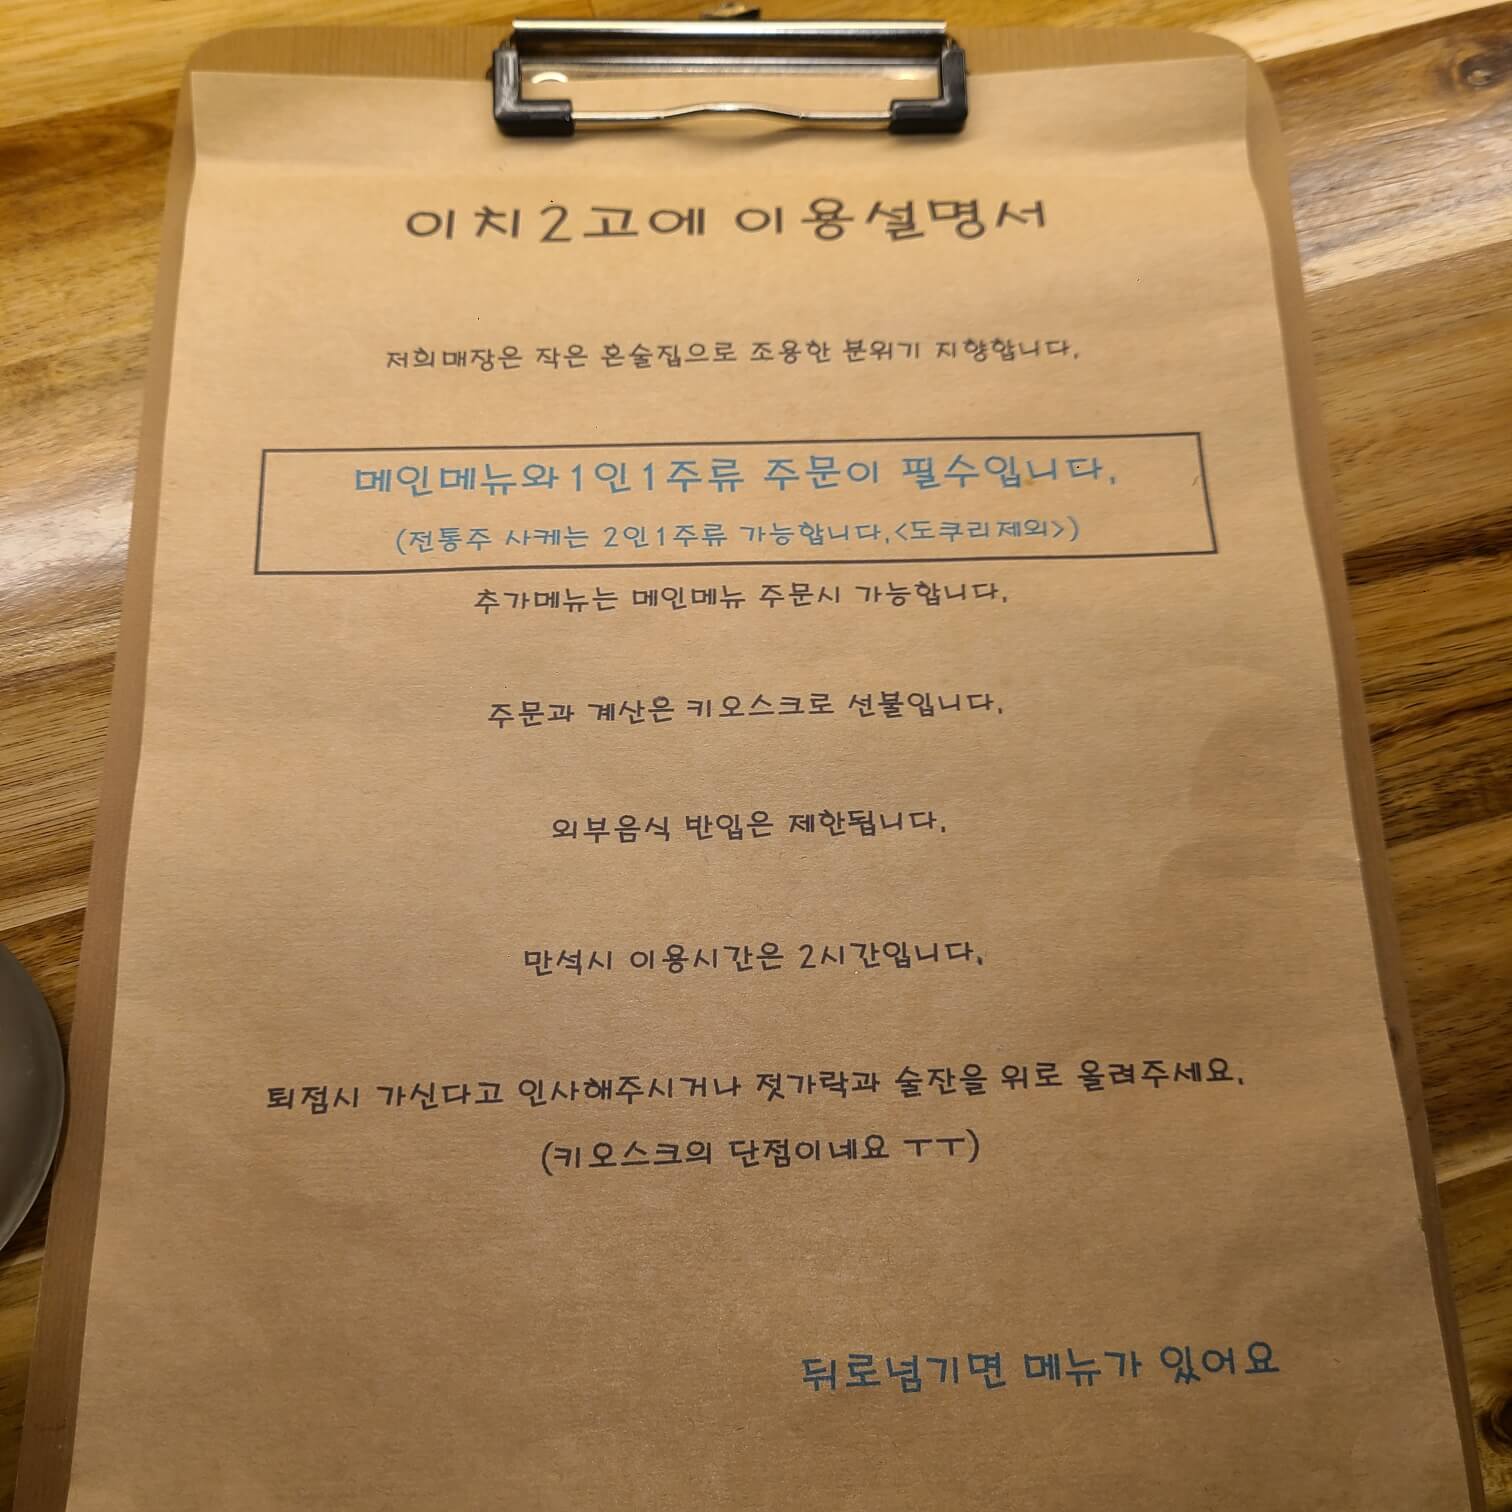 이치2고에 이용설명서
저희매장은 작은 혼술집으로 조용한 분위기 지향합니다.
메인메뉴와1인1주류 주문이 필수입니다.
(전통주 사케는 2인1주류 가능합니다.<도쿠리제외>)
추가메뉴는 메인메뉴 주문시 가능합니다.
주문과 계산은 키오스크로 선불입니다.
외부음식 반입은 제한됩니다.
만석시 이용시간은 2시간입니다.
퇴점시 가신다고 인사해주시거나 젓가락과 술잔을 위로 올려주세요.
(키오스크의 단점이네요 ㅜㅜ)
뒤로넘기면 메뉴가 있어요